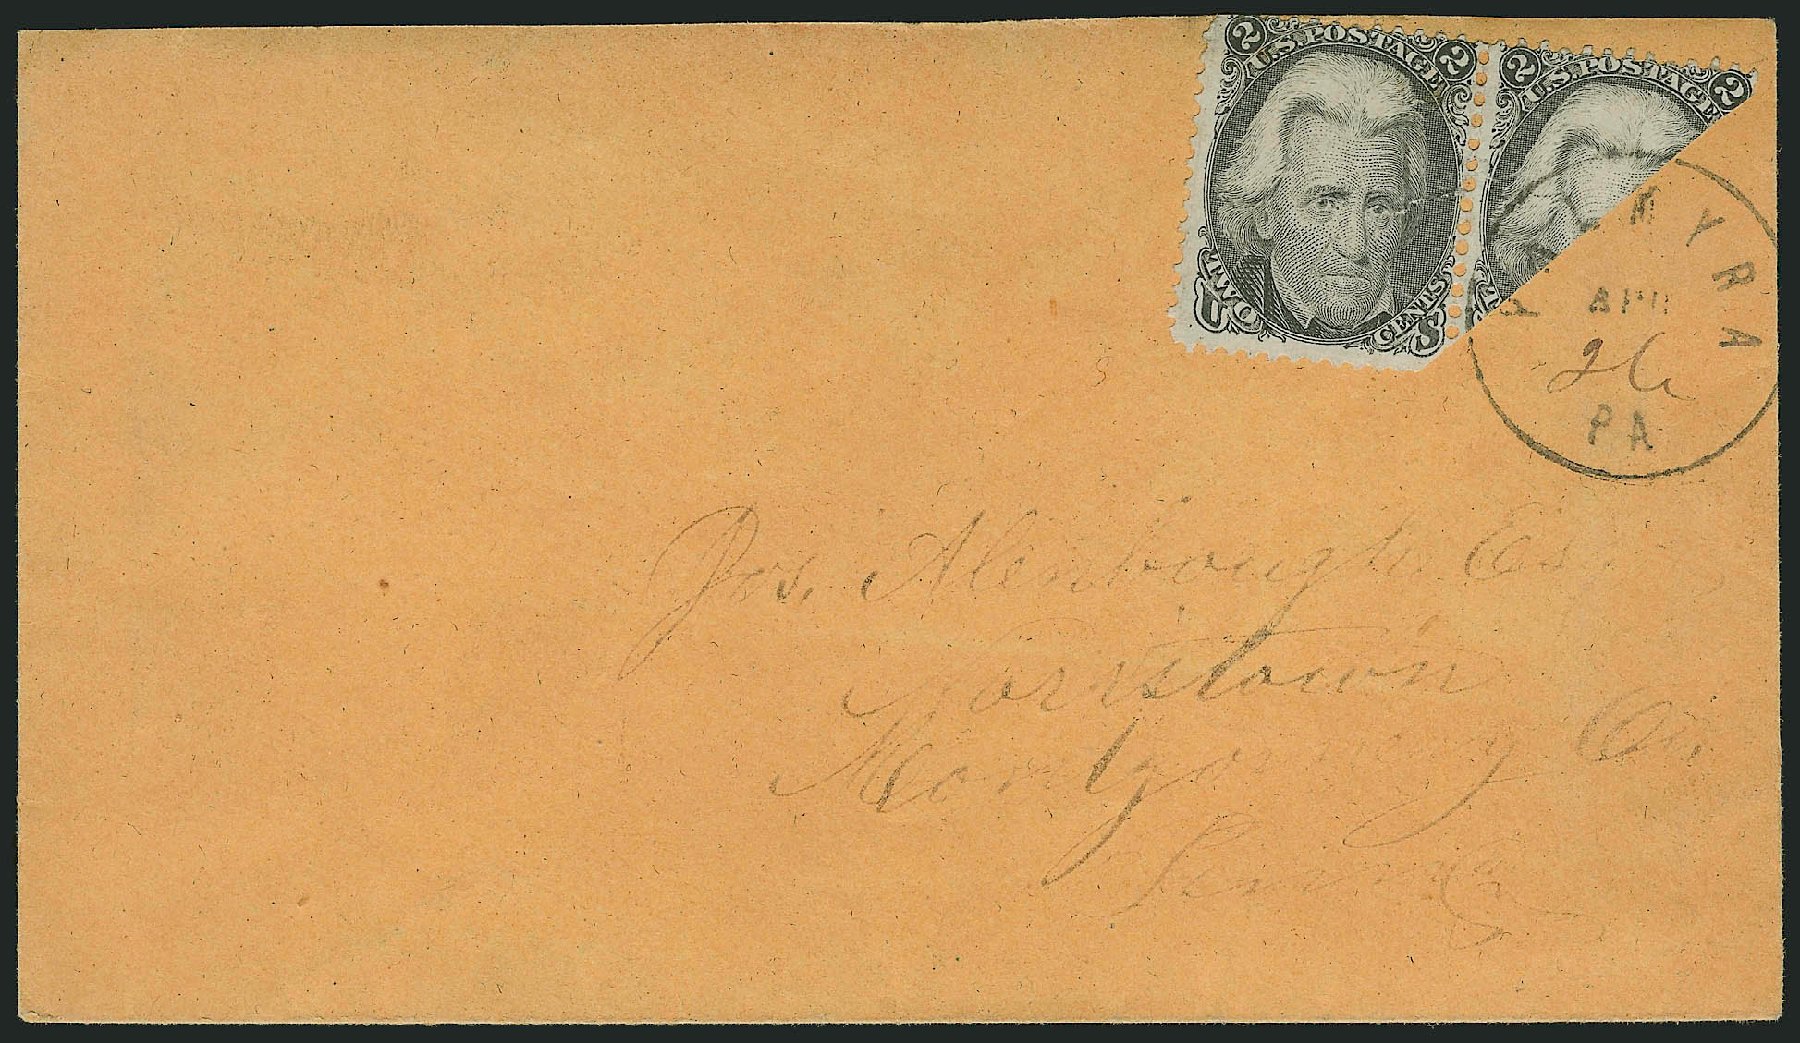 2 U.S. POSTAGE 2
2 U.S. POSTAGE 2
TWO CENTS
PALMYRA
APR
26
PA
Jos. Alenbough Es
Norristown
Montgomery Co.
Penna